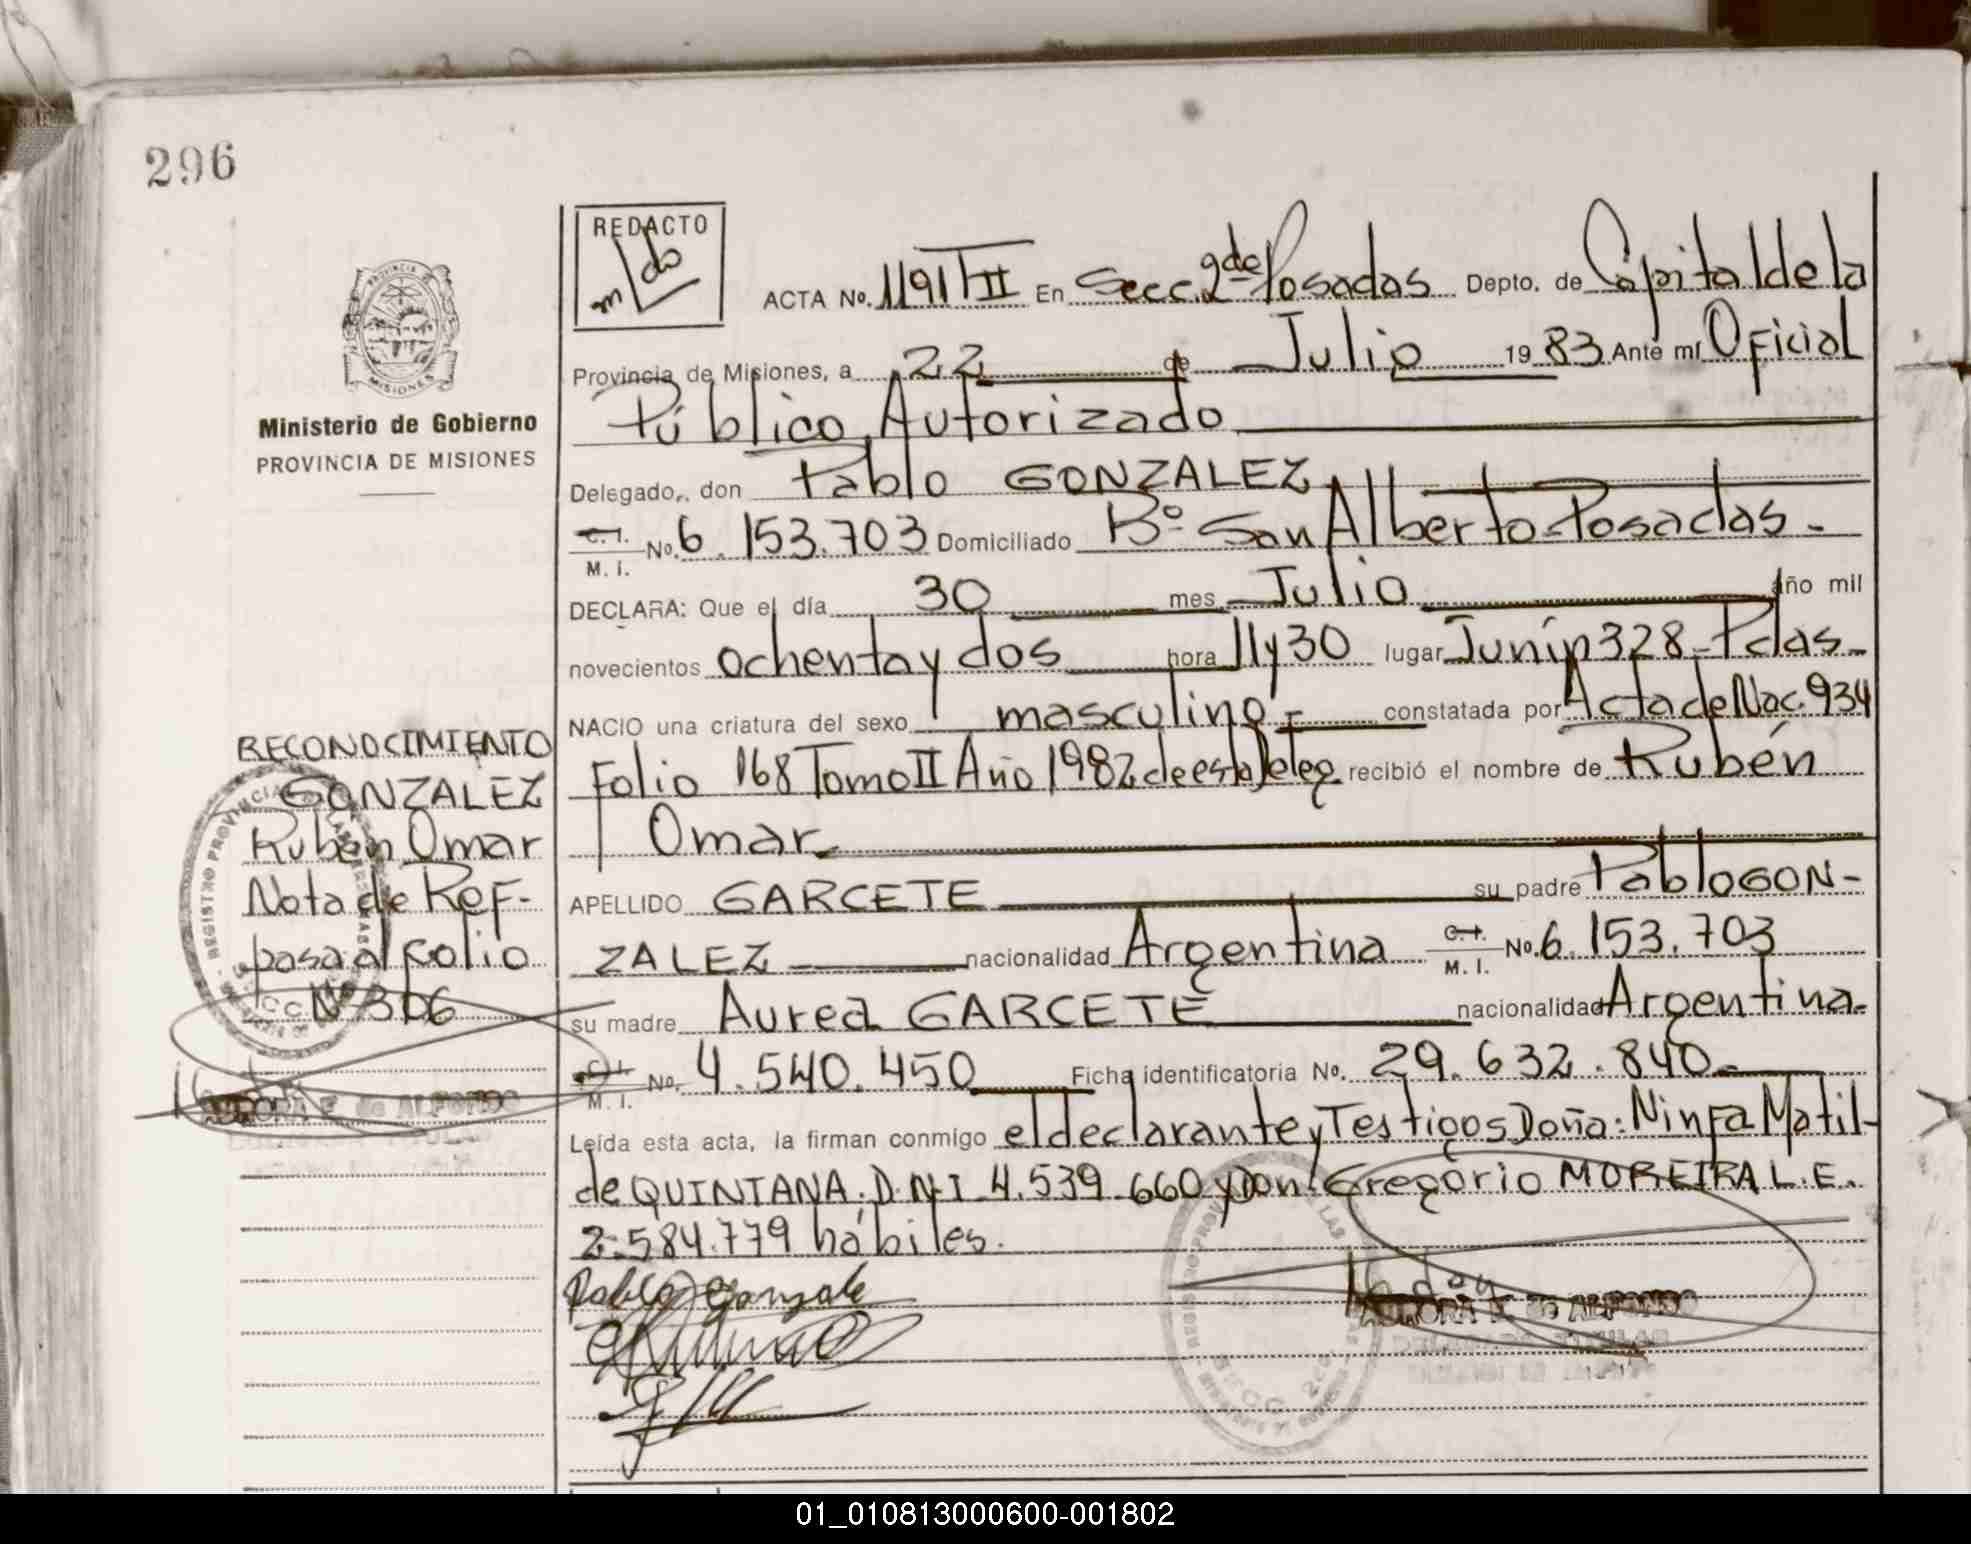 296
REDACTO
PROVINCIA DE
MISIONES
Ministerio de Gobierno
PROVINCIA DE MISIONES
ACTA No. 1191 T II En Secc. 2da de Posadas Depto. de Capital de la
Provincia de Misiones, a 22 de Julio 1983. Ante mí Oficial
Público Autorizado
Delegado, don Pablo GONZALEZ
C. I. No. 6.153.703 Domiciliado Bº San Alberto-Posadas.
M. I.
DECLARA: Que el día 30 mes Julio año mil
novecientos ochenta y dos hora 11 y 30 lugar Junín 328-Pdas-
NACIO una criatura del sexo masculino- constatada por Acta de Nac. 934
Folio 168 Tomo II Año 1982 de esta Deleg recibió el nombre de Rubén
Omar
APELLIDO GARCETE su padre Pablo GON-
ZALEZ nacionalidad Argentina C. I. No. 6.153.703
M. I.
su madre Aurea GARCETE nacionalidad Argentina.
C. I. No. 4.540.450 Ficha identificatoria No. 29.632.840-
M. I.
Leída esta acta, la firman conmigo el declarante y Testigos Doña: Ninfa Matil-
de QUINTANA. D.N.I 4.539.660 y Don: Gregorio MOREIRA L.E.
2.584.779 hábiles.
Pablo Gonzale
AURORA E. de ALFONSO
SECC. 2da.
RECONOCIMIENTO
GONZALEZ
Rubén Omar
Nota de Ref-
pasa al folio
Nº 306
AURORA E. de ALFONSO
01_010813000600-001802